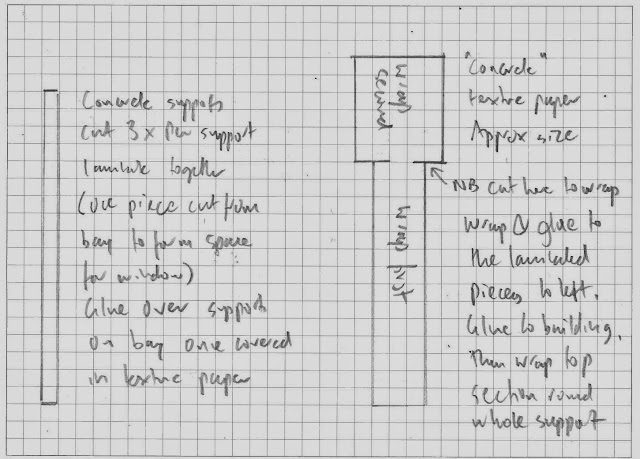 Concrete supports
cut 3 x per support
laminate together
(use piece cut from
bay to form space
for window)
Glue over support
on bay once covered
in texture paper
wrap
second
wrap first
"Concrete"
texture paper
Approx size
NB cut here to wrap
wrap & glue to
the laminated
pieces to left.
Glue to building.
Then wrap top
section round
whole support